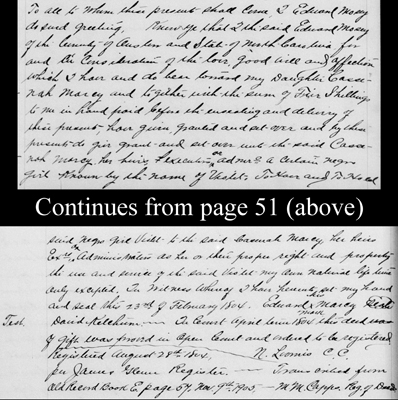 To all to whom these present shall Come, I Edward Maszy
do send greeting, Know ye that I the said Edward Maszy
of the County of Onslow and State of North Carolina for
and in Consideration of the love, Good will and affection
which I have and do bear toward my Daughter Cassi-
nah Marcy and together with the sum of Five Shillings
to me in hand paid before the ensealing and delivery of
these present, have given granted and set over and by these
presents do give grant and set over unto the said Cassa-
nah Marcy, her heirs & executors or admrs a Certain negro
girl Known by the name of Violet. To Have and To Hold
Continues from page 51 (above)
said Negro Girl Violet to the said Casinah Marcy, her heirs
Exs, or Administrators as her or their proper right and property
the use and service of the said Violet my own natural life time
only excepted, In Witness whereof I have hereunto set my hand
and seal this 23rd of February 1804. Edward his Marcy Seal
mark
Test. David Ketchum In Court April term 1804 this deed was
of gift was proved in Open Court and ordered to be registered
Registered August 28th 1804. N. Loomis C. C.
per James Glenn Register. Transcribed from
old Record Book E, page 67, Nov, 9th 1903, M. M. Capps, Reg of Deeds